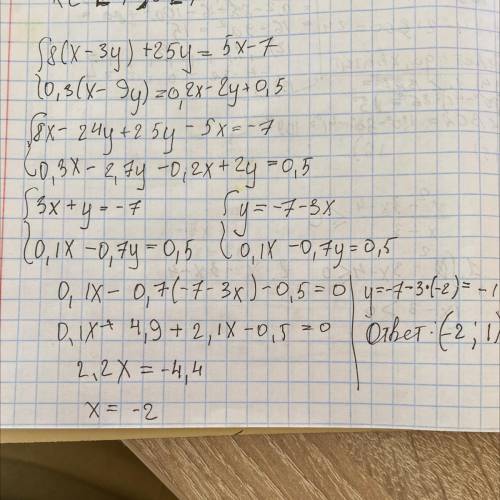 8(x-3y)+25y=5x-7
0,3(x-9y)=0,2x-2y+0,5
8x-24y+25y-5x=-7
0,3x-2,7y-0,2x+2y=0,5
3x+y=-7
0,1x-0,7y=0,5
y=-7-3x
0,1x-0,7y=0,5
0,1x-0,7(-7-3x)-0,5=0
0,1x+4,9+2,1x-0,5=0
2,2x=-4,4
x=-2
y=-7-3·(-2)=-1
Ответ: (-2; 1)